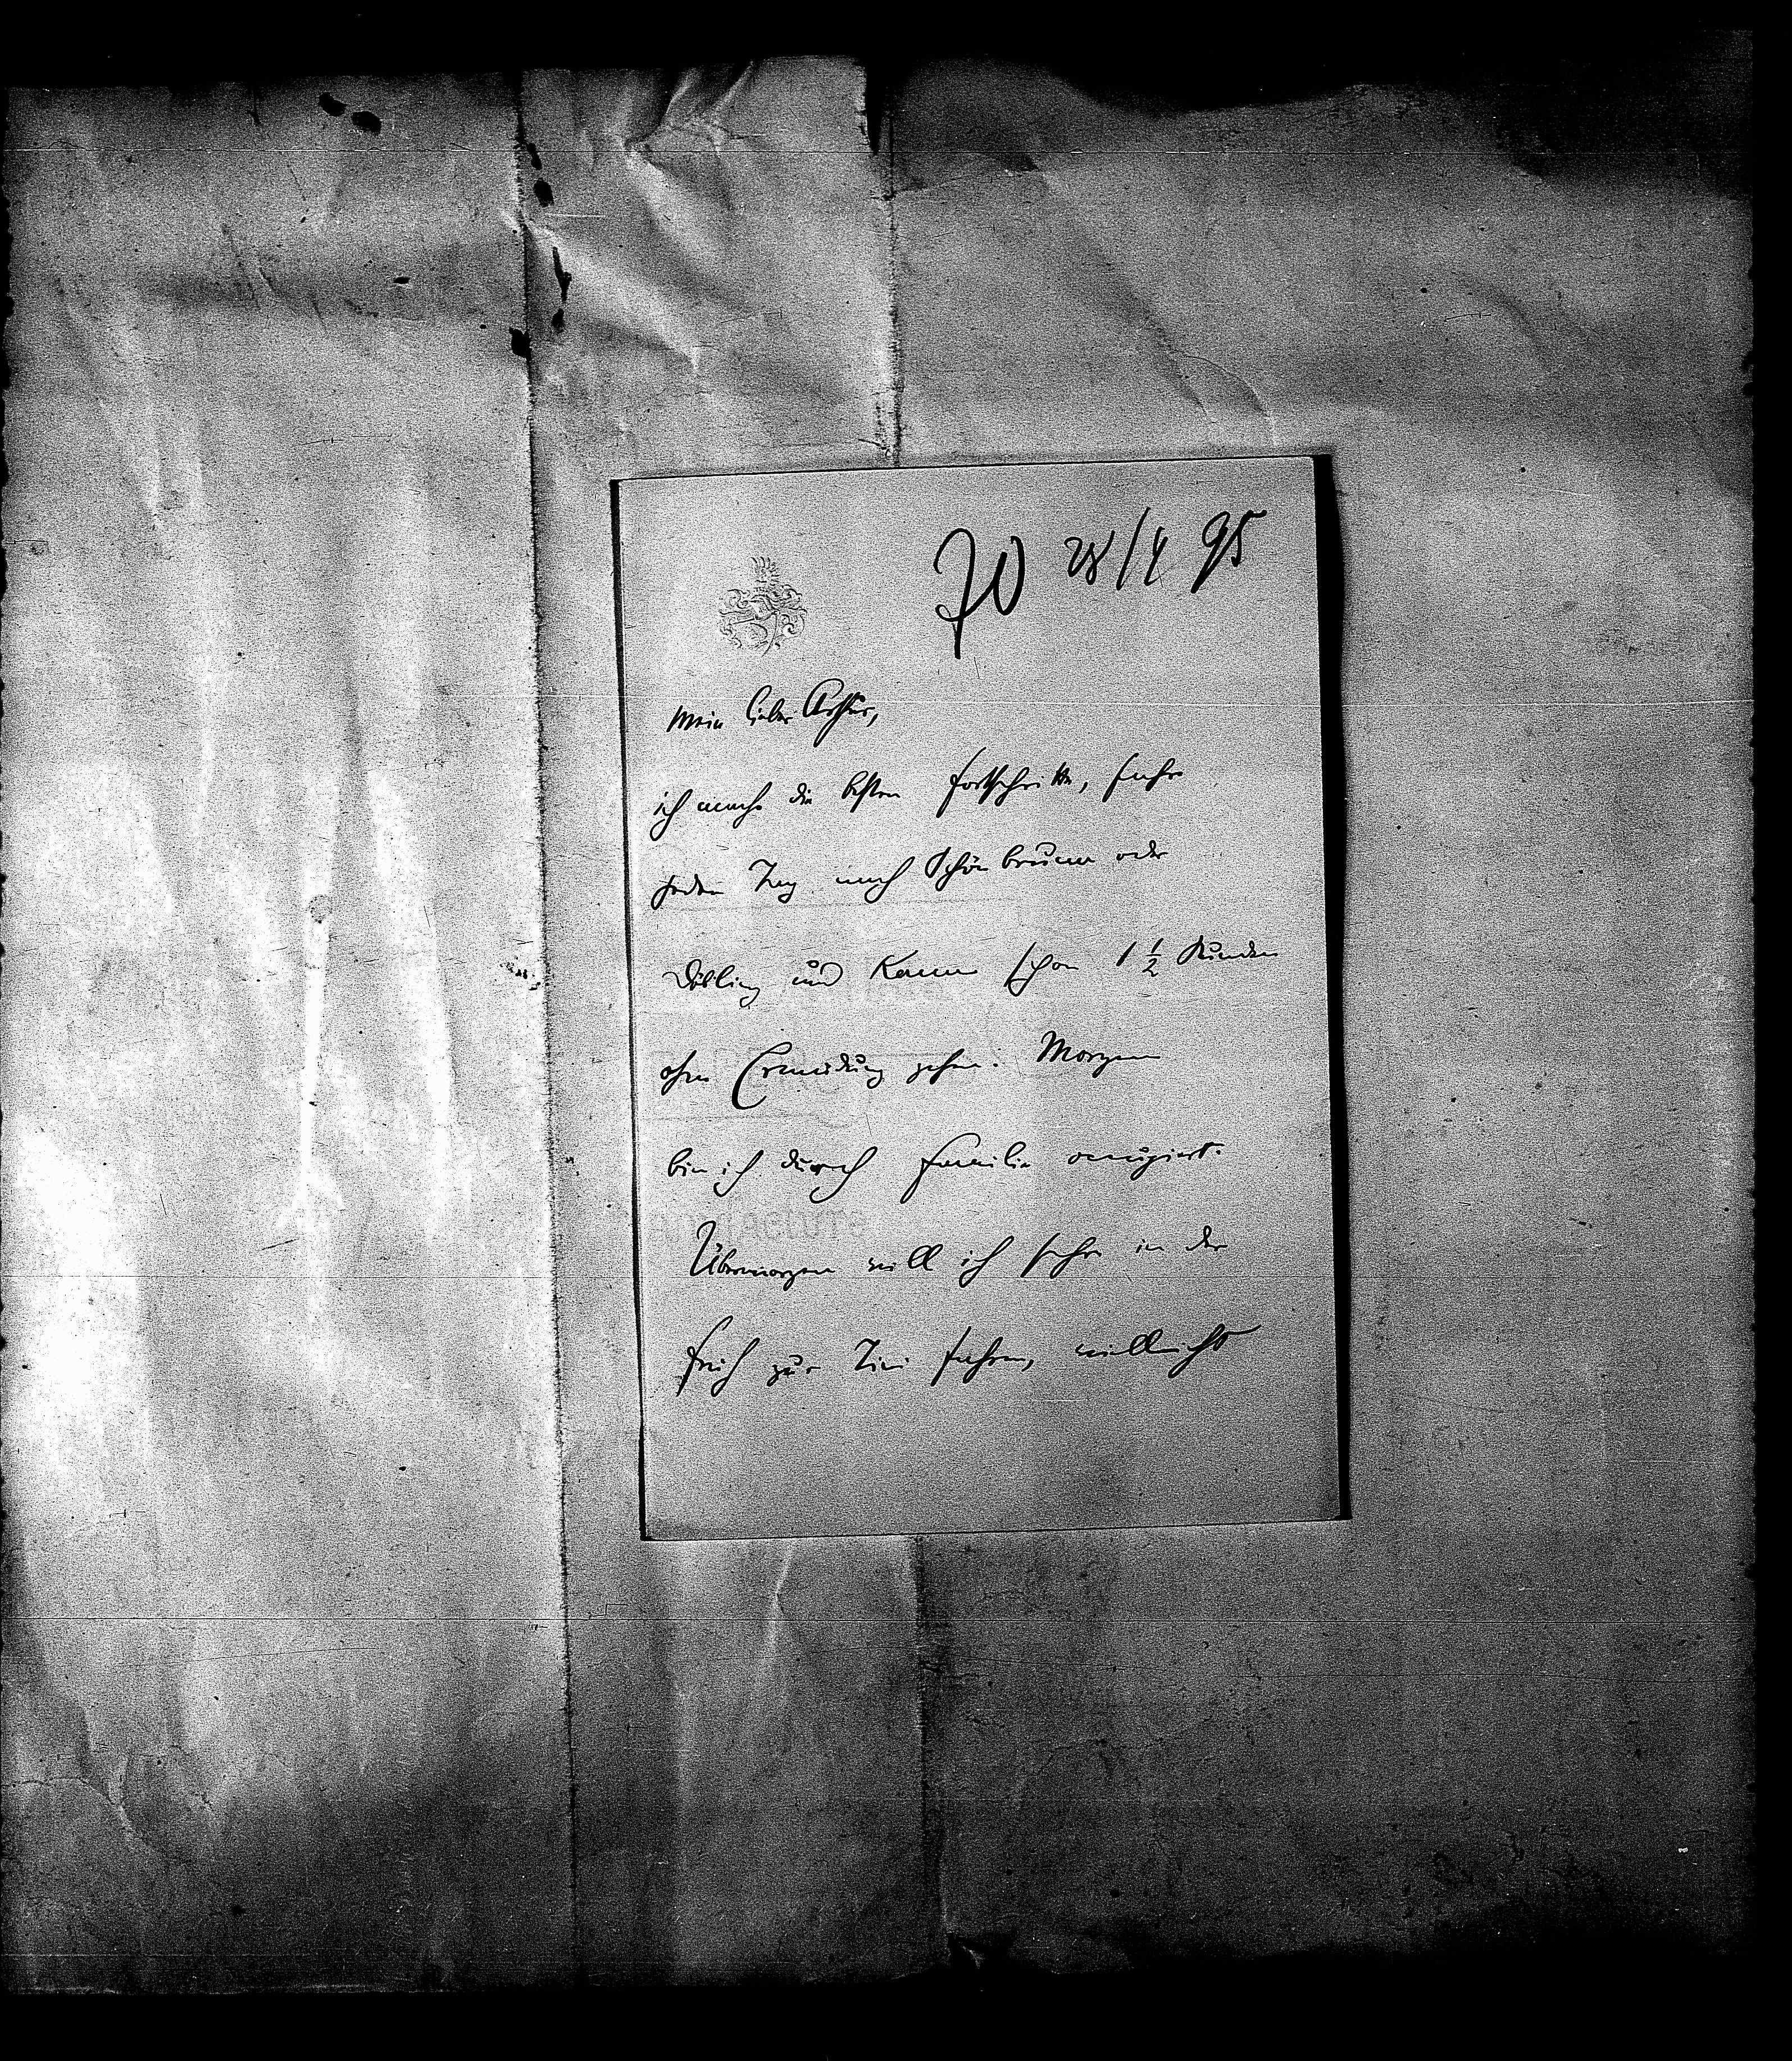 28/4 95
mein lieber Arthur,
ich mache die besten Fortschritte, fahre
jeden Tag nach Schönbrunn oder
Döbling und kann schon 1 1/2 Stunden
ohne Ermüdung gehen. Morgen
bin ich durch Familie occupiert.
Übermorgen will ich sehr in der
Früh zur fahren, vielleicht